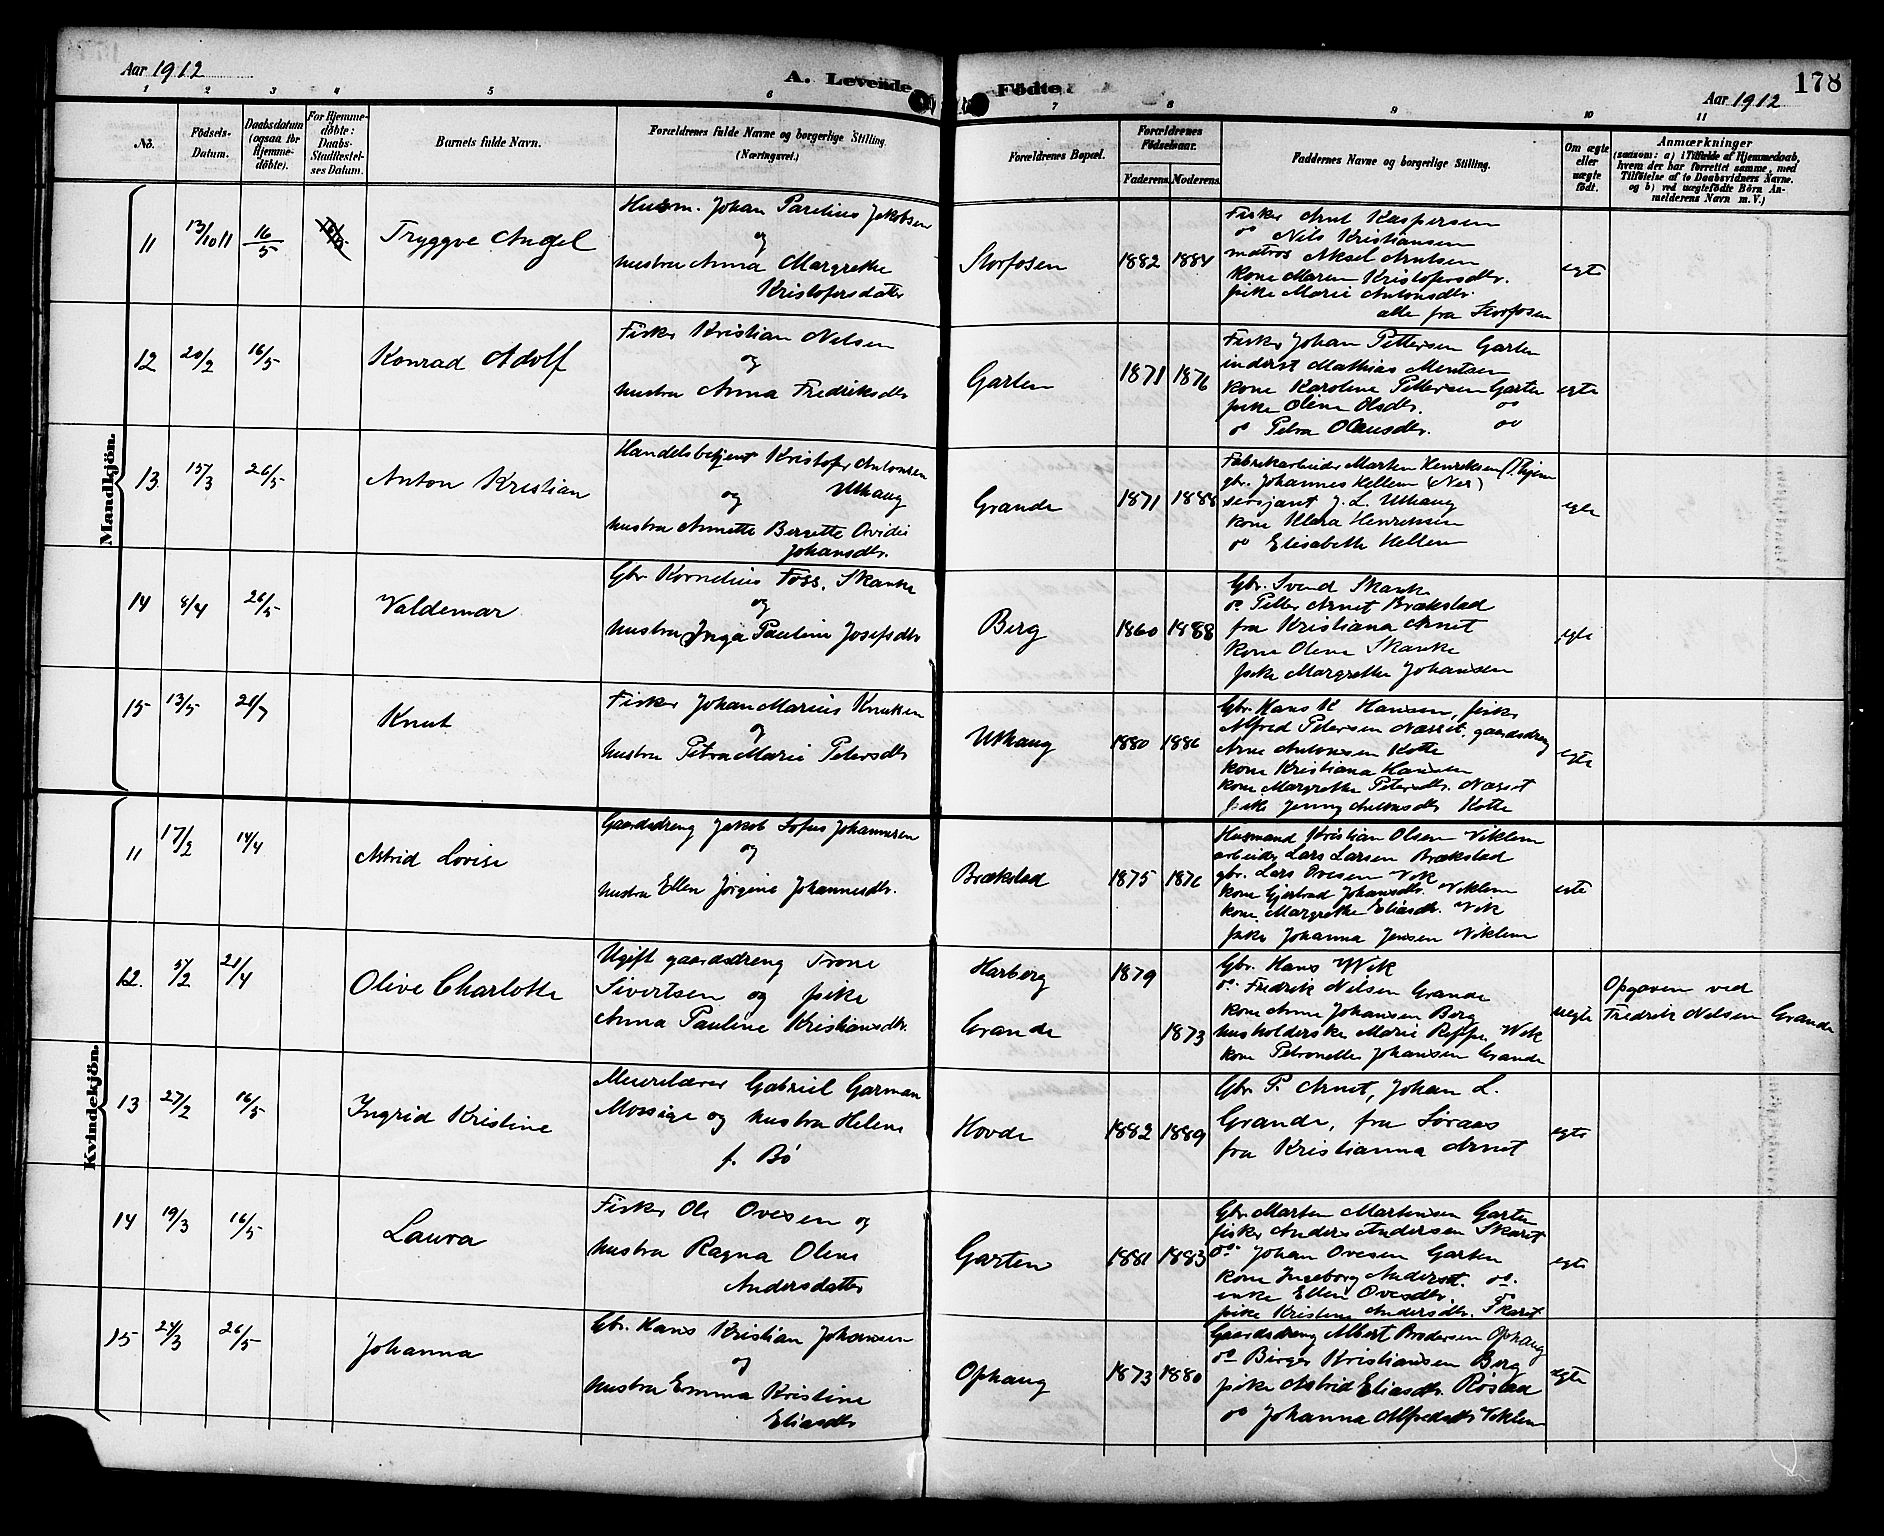 Aar 1912
A. Levende
Fødte
178
Aar 1912
1 2 3 4 5 6 7 8 9 10 11
No.
Fødsels-
Datum.
Daabsdatum
(ogsaa for
Hjemme-
døbte).
For Hjemme-
døbte:
Daabs-
Stadfæstel-
ses Datum.
Barnets fulde Navn.
Forældrenes fulde Navne og borgerlige Stilling
(Næringsvei.)
Forældrenes Bopæl.
Forældrenes
Fødselsaar.
Faderens. Moderens.
Faddernes Navne og borgerlige Stilling.
Om ægte
eller
uægte
født.
Anmærkninger
(saasom: a) i Tilfælde af Hjemmedaab,
hvem der har forrettet samme, med
Tilføielse af to Daabsvidners Navne.
og b) ved uægtefødte Børn An-
melderens Navn m. V.)
Mandkjön.
11 13/10 11 16/5 Tryggve Angel
Husm. Johan Parelius Jakobsen
og
hustru Anna Margrethe
Kristofersdater
Storfosen 1882 1884
Fisker Arnt Kaspersen
do Nils Kristiansen
matros Aksel Arntsen
kone Maren Kristofersdtr.
pike Marie Antonsdtr.
alle fra Storfosen
egte
12 20/2 16/5 Konrad Adolf
Fisker Kristian Nilsen
og
hustru Anna Fredriksdtr
Garten 1871 1876
Fisker Johan Pettersen Garten
inderst Mathias Mentsen
kone Karoline Pettersen Garten
pike Oline Olsdtr. do
do Petra Olausdtr. do
egte
13 15/3 26/5 Anton Kristian
Handelsbetjent Kristofer Antonsen
Uthaug
og
hustru Annette Bergitte Ovidie
Johansdtr.
Grande 1871 1888
Fabrikarbeider Marten Henriksen
gbr. Johannes Hellem (Nes)
sersjant J. L. Uthaug
kone Klara Henriksen
do Elisabeth Hellem
egte
14 8/4 26/5 Valdemar
Gbr Kornelius Foss. Skanke
og
hustru Inga Pauline Josefsdtr
Berg 1860 1888
Gbr. Svend Skanke
do. Petter Arnet Brækstad
fru Kristiana Arnet
kone Oline Skanke
pike Margrethe Johansen
egte
15 13/5 21/7 Knut
Fisker Johan Marius Knutsen
og
hustru Petra Marie Petersdtr
Uthaug 1880 1886
Gbr. Hans K Hansen, fisker
Alfred Petersen Næsset, gaardsdreng
Arne Antonsen Kotte
kone Kristiana Hansen
kone Margrethe Petersdtr. Næsset
pike Jenny Antonsdtr Kotte
egte
Kvindekjön.
11 17/2 14/4 Astrid Lovise
Gaardsdreng Jakob Sofus Johannesen
og
hustru Ellen Jørgine Johannesdtr.
Brækstad 1875 1876
Husmand Kristian Olsen Viklem
arbeider Lars Larsen Brækstad
gbr. Lars Ovesen Vik
kone Gjertrud Johansdtr. Viklem
kone Margrethe Eliasdtr. Vik
pike Johanna Jensen Viklem
egte
12. 5/2 21/4 Olive Charlotte
Ugift gaardsdreng Trone
Sivertsen og pike
Anna Pauline Kristiansdtr.
Harberg 1879
Grande 1873
Gbr. Hans Wik
do. Fredrik Nilsen Grande
kone Anne Johansen Berg
husholderske Marie Reppe, Wik
kone Petronelle Johansen Grande
uegte
Opgaven ved
Fredrik Nilsen Grande
13 27/2 16/5 Ingrid Kristine
Meierilærer Gabriel Garman
Mossige og hustru Helene
f. Bø
Hovde 1882 1889
Gbr P. Arnet, Johan L.
Grande, fru Søraas
fru Kristianna Arnet
egte
14 19/3 16/5 Laura
Fisker Ole Ovesen og
hustru Ragna Oline
Andersdatter
Garten 1881 1883
Gbr Marten Martinsen Garten
fisker Anders Andersen Skaret
do. Johan Ovesen Garten
kone Ingeborg Andersdt. do.
enke Ellen Ovesdtr. do
pike Kristine Andersdtr. Skaret
egte
15 24/3 26/5 Johanna
Gbr. Hans Kristian Johansen
og
hustru Emma Kristine
Eliasdtr
Ophaug 1873 1880
Gaardsdreng Albert Brodersen Ophaug
do Birger Kristiansen Berg
pike Astrid Eliasdtr. Røstad
do Johanna Alfredsdtr Viklem
egte